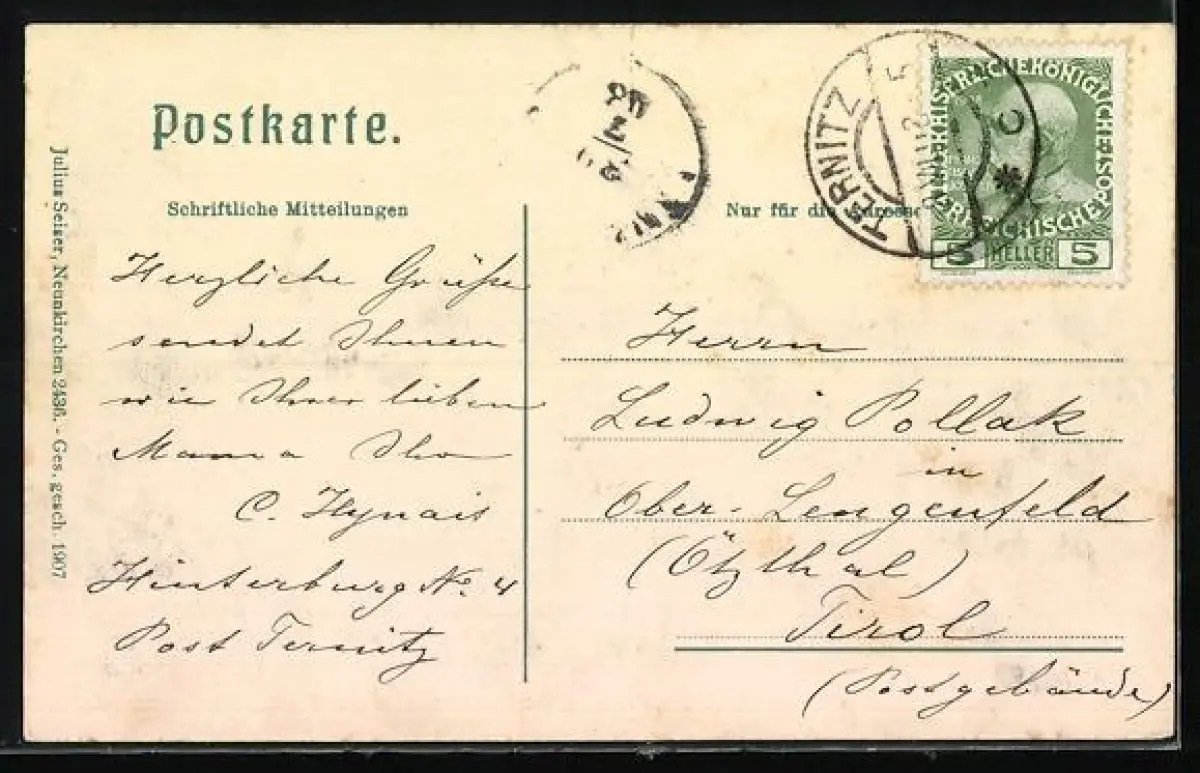 Postkarte.
Schriftliche Mitteilungen
Nur für die Adresse
Julius Seiser, Neunkirchen 2436. - Ges. gesch. 1907
TERNITZ
C
5 HELLER 5
Herzliche Grüße
sendet Ihnen
wie Ihrer lieben
Mama Ihr
C. Hynais
Hinterburg No. 4
Post Ternitz
Herrn
Ludwig Pollak
in
Ober-Lengenfeld
(Ötzthal)
Tirol
(Postgebäude)